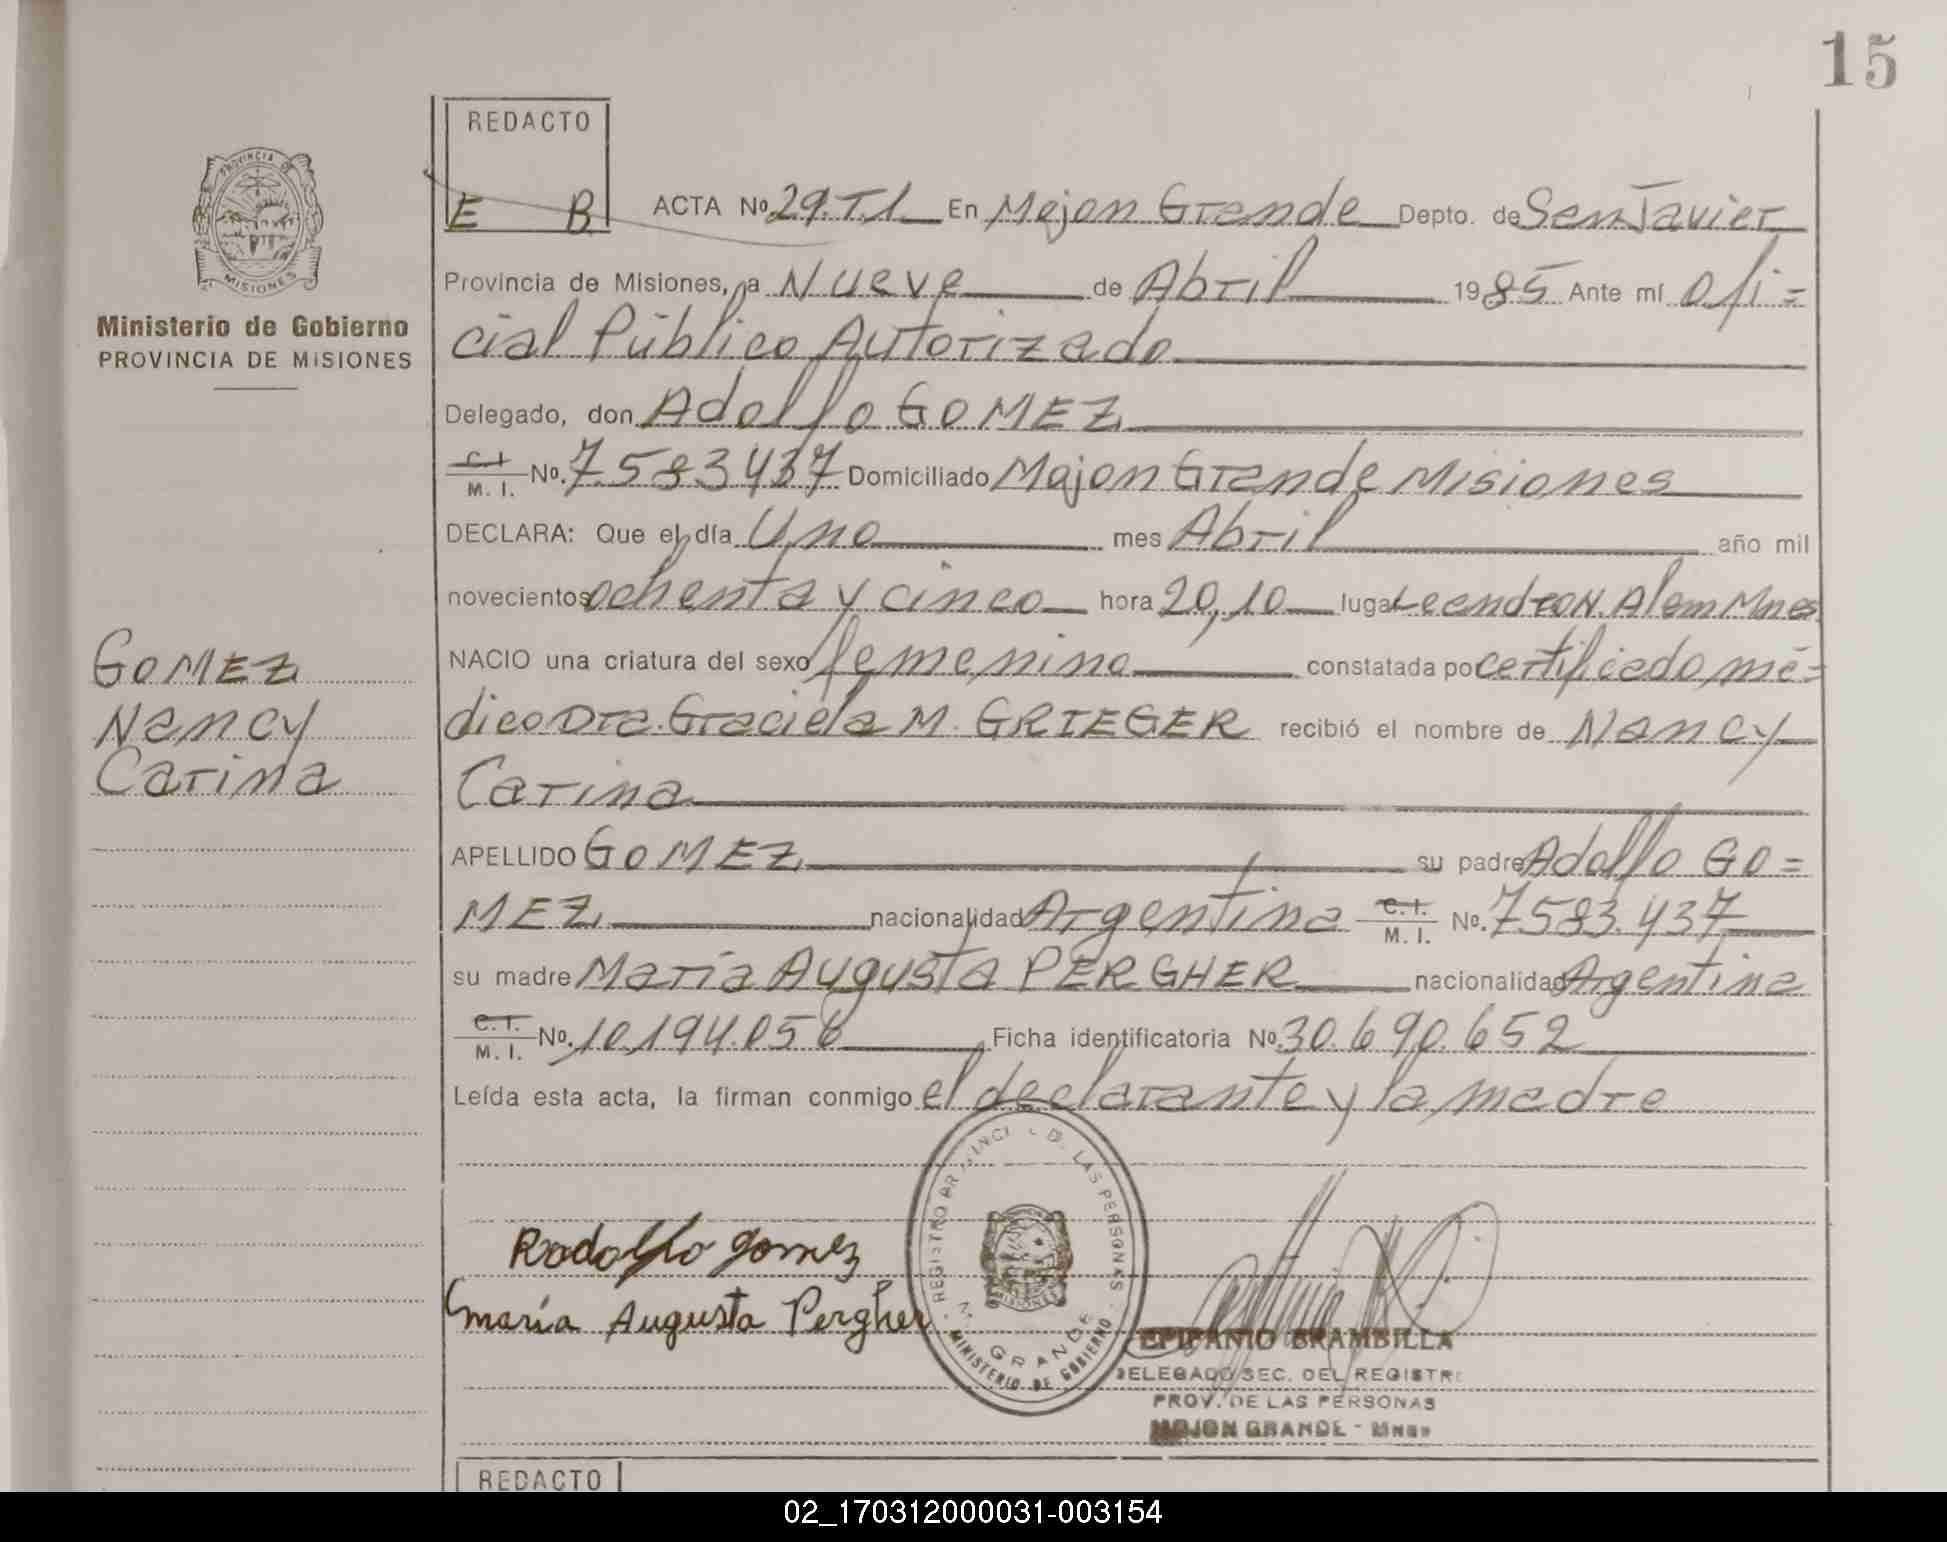 15
REDACTO
E B.
PROVINCIA DE
MISIONES
Ministerio de Gobierno
PROVINCIA DE MISIONES
ACTA Nº 29.T.1 En Mojon Grande Depto. de San Javier
Provincia de Misiones, a Nueve de Abril 1985 Ante mí ofi=
cial Público Autorizado
Delegado, don Adolfo GOMEZ
C.I. M. I. Nº. 7.583437 Domiciliado Mojon Grande Misiones
DECLARA: Que el día Uno mes Abril año mil
novecientos ochenta y cinco hora 20,10 lugar Leandro N. Alem Mnes
NACIO una criatura del sexo femenino constatada por certificado mé=
dico Dra. Graciela M. GRIEGER recibió el nombre de Nancy
Carina
APELLIDO GOMEZ su padre Adolfo GO=
MEZ nacionalidad Argentina C.I. M. I. Nº. 7583.437
su madre María Augusta PERGHER nacionalidad Argentina
C.I. M. I. Nº. 10.194.056 Ficha identificatoria Nº. 30.690.652
Leída esta acta, la firman conmigo el declarante y la madre
GOMEZ
Nancy
Carina
Rodolfo gomez
maría Augusta Pergher
REGISTRO PROVINCI D. LAS PERSONAS
M. GRANDE
MINISTERIO DE GOBIERNO
MISIONES
EPIFANIO BRAMBILLA
DELEGADO SEC. DEL REGISTR
PROV. DE LAS PERSONAS
MOJON GRANDE - Mnes
REDACTO
02_170312000031-003154